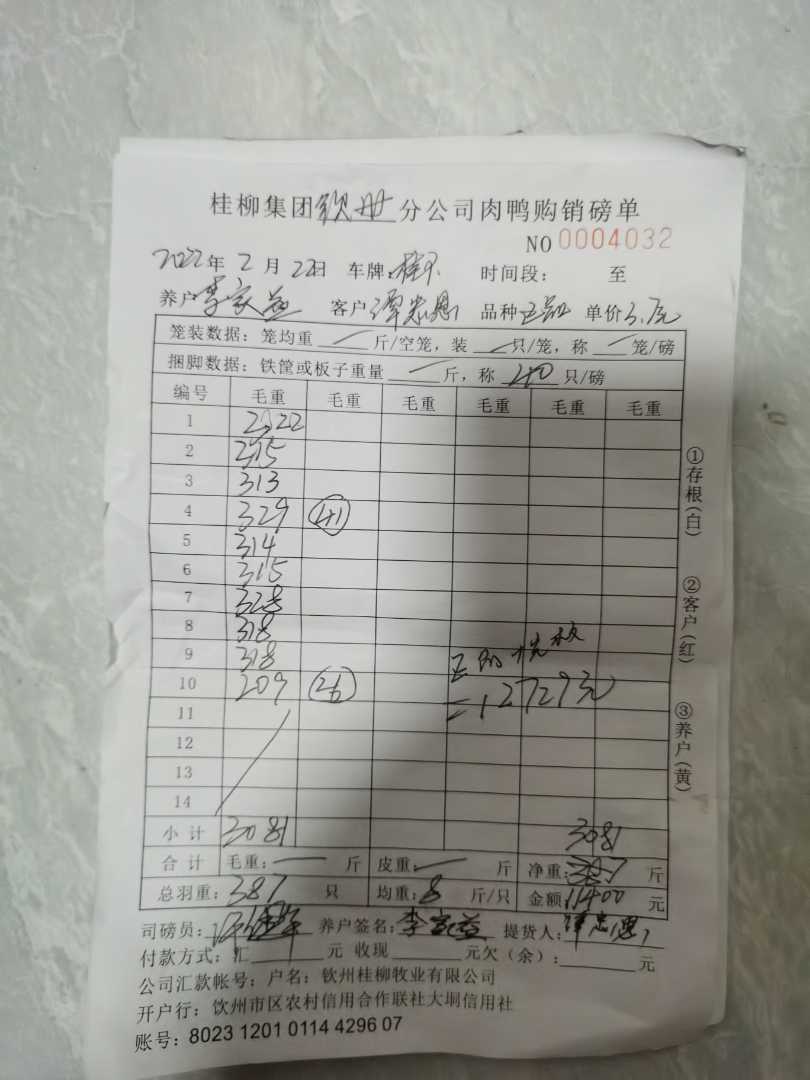 桂柳集团钦州分公司肉鸭购销磅单
NO 0004032
2022年2月22日 车牌: 时间段: 至
养户李家益 客户谭忠恩 品种 单价3.7元
笼装数据: 笼均重 斤/空笼, 装 只/笼, 称 笼/磅
捆脚数据: 铁筐或板子重量 斤, 称 40 只/磅
编号 毛重 毛重 毛重 毛重 毛重 毛重
1 322
2 315
3 313
4 329 41
5 314
6 315
7 328
8 318
9 318
10 209 26
11
12
13
14
=12729元
小计 3081 3081
合计 毛重: 斤 皮重: 斤 净重: 斤
总羽重: 387 只 均重: 8 斤/只 金额: 11400 元
司磅员: 养户签名: 李家益 提货人: 谭忠恩
付款方式: 汇 元 收现 元欠(余): 元
公司汇款帐号: 户名: 钦州桂柳牧业有限公司
开户行: 钦州市区农村信用合作联社大垌信用社
账号: 8023 1201 0114 4296 07
①存根(白)
②客户(红)
③养户(黄)